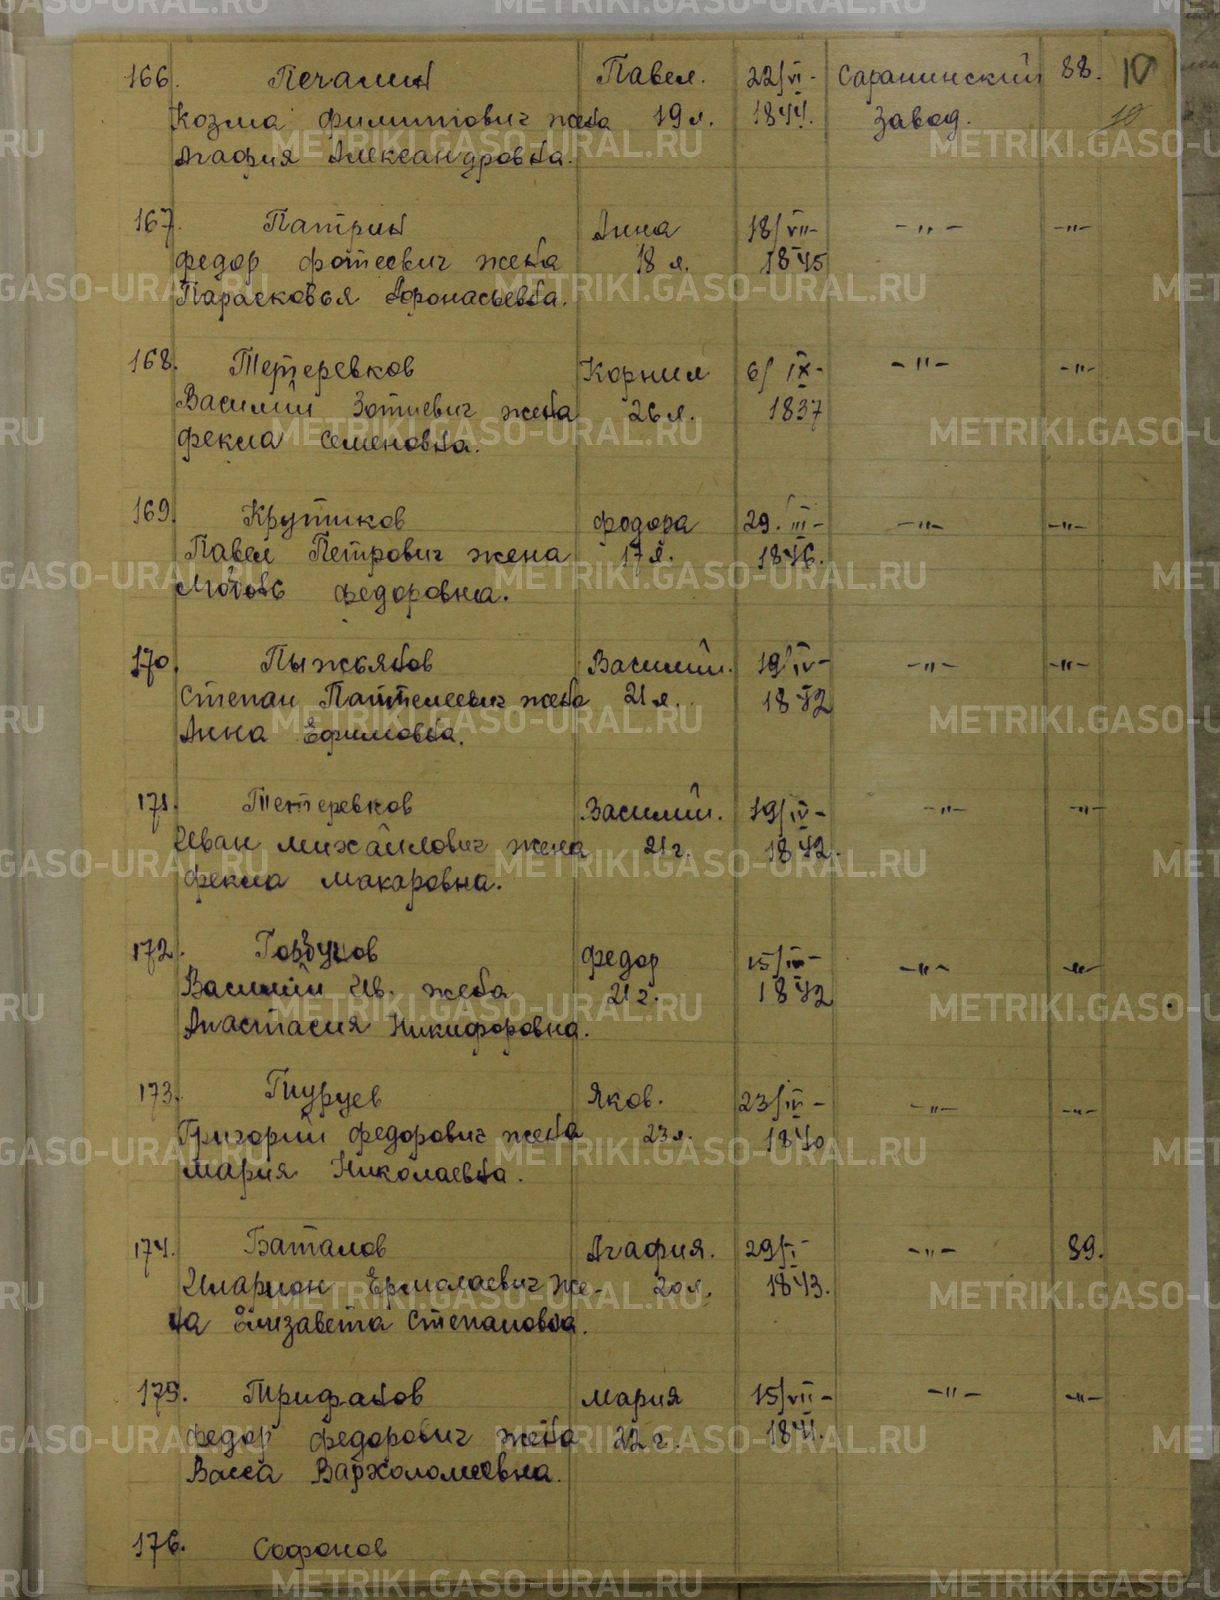 166. Печалин Павел. 22/VI- Саранинский 88. 10
Козма Филиппович жена 19 л. 1844. завод. 10
Агафия Александровна.
167. Патрин Анна 18/VII- -"- -"-
Федор Фотеевич жена 18 л. 1845
Парасковья Афонасьевна.
168. Тетеревков Корнил 6/IX- -"- -"-
Василий Зотиевич жена 26 л. 1837
Фекла Семеновна.
169. Крутиков Федора 29.III- -"- -"-
Павел Петрович жена 17 л. 1846.
Любовь Федоровна.
170. Пыжьянов Василий. 19/IV- -"- -"-
Степан Пантелеевич жена 21 л. 1842
Анна Ефимовна.
171. Тетеревков Василий. 19/IV- -"- -"-
Иван Михайлович жена 21 г. 1842.
Фекла Макаровна.
172. Горбунов Федор -"- -"-
Василий Ив. жена 21 г. 1842
Анастасия Никифоровна.
173. Яков. 23/IV- -"- -"-
Григорий Федорович жена 23 л. 1840
Мария Николаевна.
174. Баталов Агафия. 29/I- -"- 89.
Иларион Ермолаевич же- 20 л. 1843.
на Елизавета Степановна.
175. Трифанов Мария 15/VII- -"- -"-
Федор Федорович жена 22 г. 1841.
Васса Вархоломеевна.
176. Софонов
METRIKI.GASO-URAL.RU